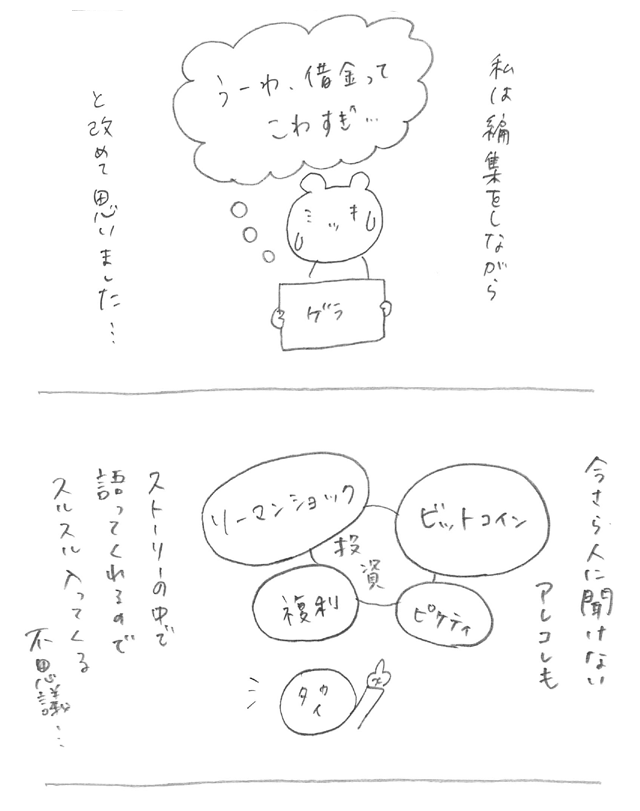 私は編集をしながら
うーわ、借金って
こわすぎ…
ミッキ
ゲラ
と改めて思いました…
今さら人に聞けない
アレコレも
リーマンショック
ビットコイン
投資
複利
ピケティ
タウイ
ストーリーの中で
語ってくれるので
スルスル入ってくる
不思議…